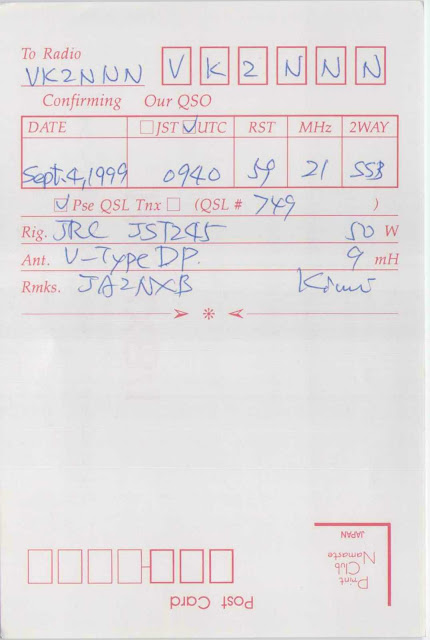 To Radio
VK2NNN V K 2 N N N
Confirming Our QSO
DATE JST UTC RST MHz 2WAY
Sept.4,1999 0940 59 21 SSB
Pse QSL Tnx (QSL # 749 )
Rig. JRC JST245 50 W
Ant. V-Type DP. 9 mH
Rmks. JA2NXB
Post Card
Print
Club
Namarte
JAPAN